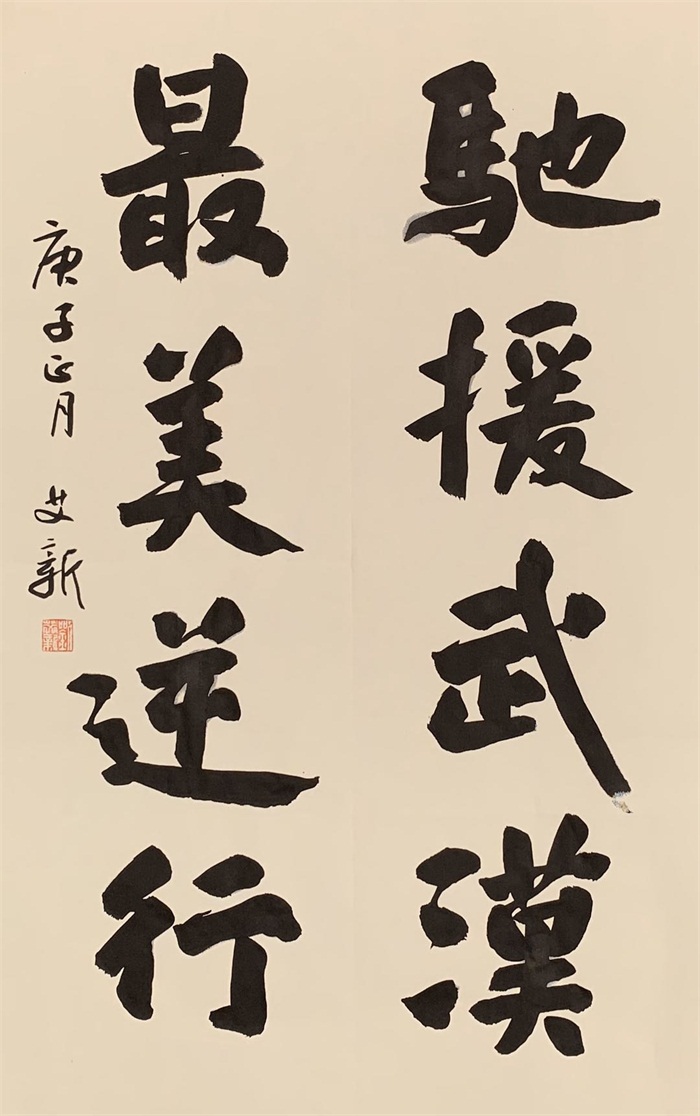 馳援武漢
最美逆行
庚子正月 艾新